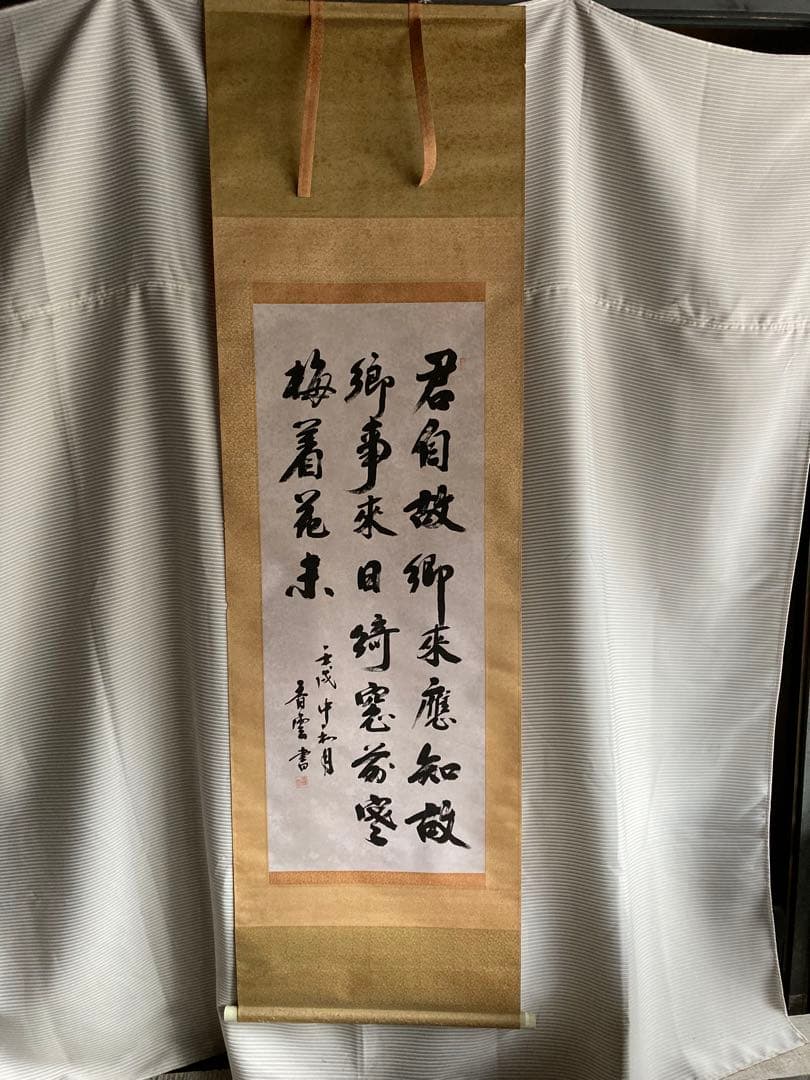 君自故鄉來應知故
鄉事來日綺窓前寒
梅着花未
壬戌中和月
香雲書